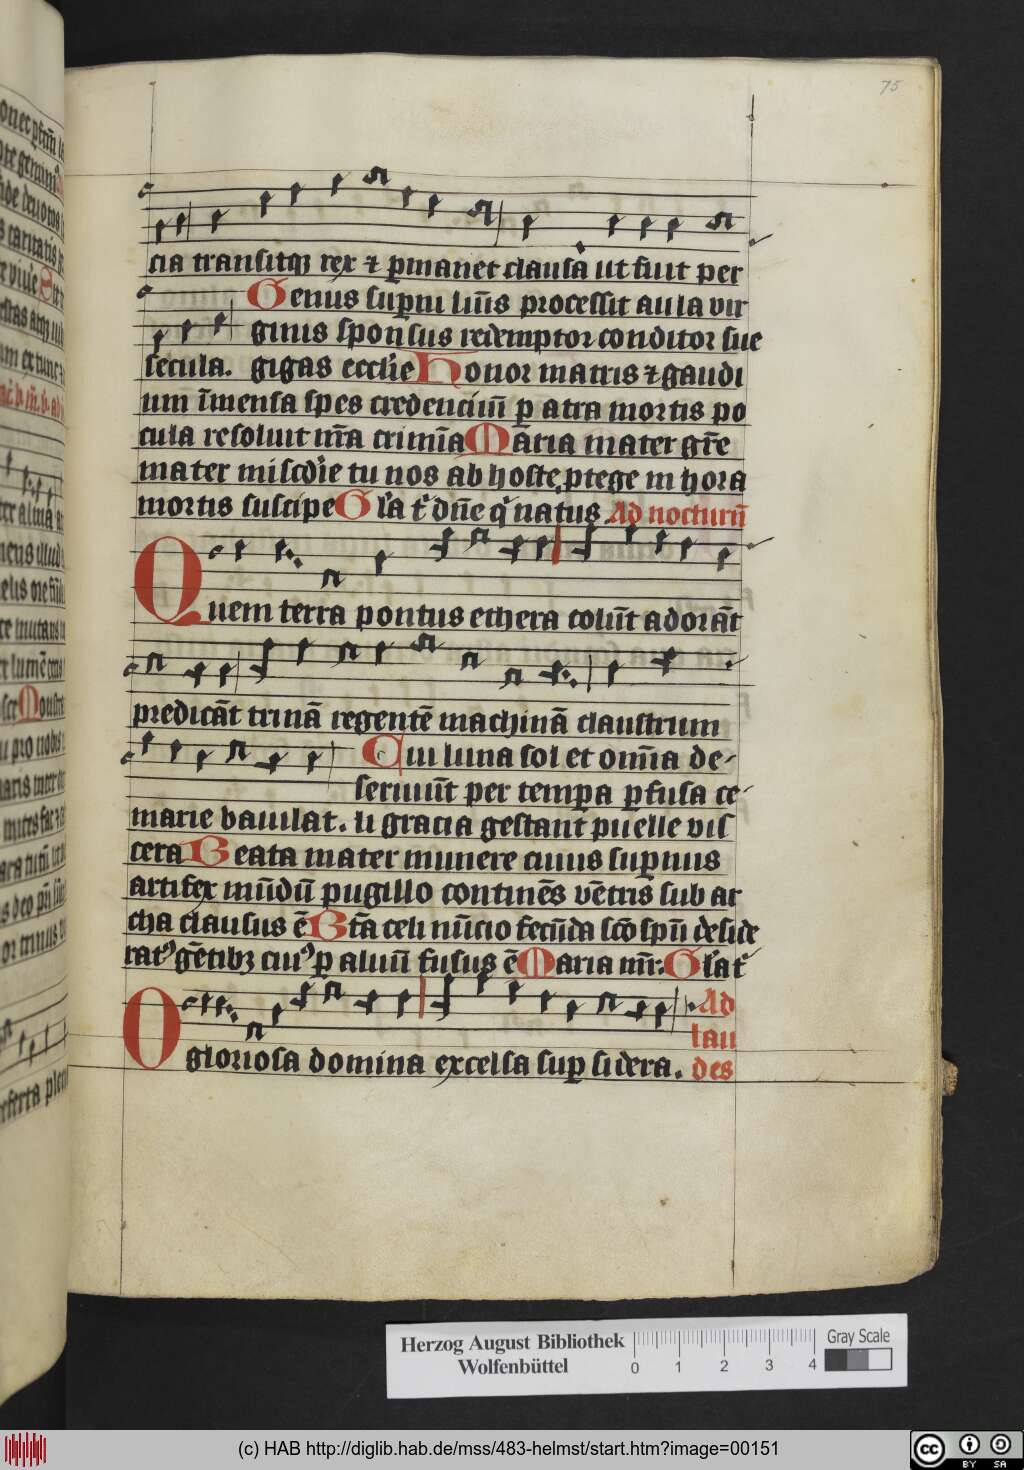 75
cia transitqꝫ rex ⁊ p̱manet clausa ut fuit per
Genus sup̱ni lūis processit aula vir
ginis sponsus redemptor conditor sue
secula. gigas eccl̄ie Honor matris ⁊ gaudi
um īmensa spes credenciū p̱ atra mortis po
cula resoluit nr̄a crimīa Maria mater gr̄e
mater misc̄die tu nos ab hoste ꝓtege in hora
mortis suscipe Gl̄a t̄ dn̄e q̄ natus Ad nocturū
Quem terra pontus ethera colūt adorāt
predicāt trinā regentē machinā claustrum
Cui luna sol et om̄ia de-
seruiūt per temp̱a p̱fusa ce-
marie baiulat. li gracia gestant puelle vis
cera Beata mater munere cuius sup̱nus
artifex mūdū pugillo continēs vētris sub ar
cha clausus ē Bt̄a celi nūcio fecūda sc̄o sp̄u deside
ratꝰ gētibꝫ cuiꝰ p̱ aluū fusus ē Maria mr̄. Gl̄a t̄
Ad
lau
O gloriosa domina excelsa sup̱ sidera. des
Herzog August Bibliothek
Wolfenbüttel
0 1 2 3 4
Gray Scale
(c) HAB http://diglib.hab.de/mss/483-helmst/start.htm?image=00151
cc BY SA